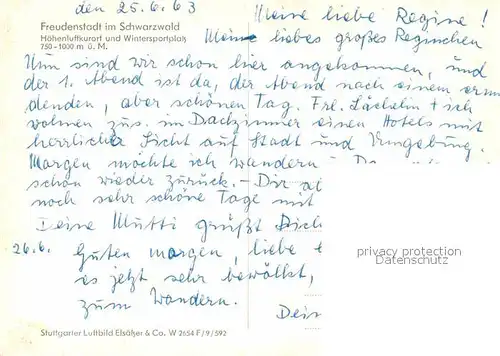 den 25.6.63
Freudenstadt im Schwarzwald
Höhenluftkurort und Wintersportplatz
750-1000 m ü. M.
Meine liebe Regine!
Meine liebes großes Reginchen
Nun sind wir schon hier angekommen, und
der 1. Abend ist da, der Abend nach einem ermü
denden, aber schönen Tag. Frl. + ich
wohnen zus. im Dachzimmer eines Hotels mit
herrlicher Sicht auf Stadt und Umgebung.
Morgen möchte ich wandern -
schon wieder zurück. - Dir
noch sehr schöne Tage mit
Deine Mutti grüßt Dich
26.6. Guten morgen, liebe
es jetzt sehr bewölkt,
zum Wandern.
privacy protection
Datenschutz
Stuttgarter Luftbild Elsäßer & Co. W 2654 F/9/592